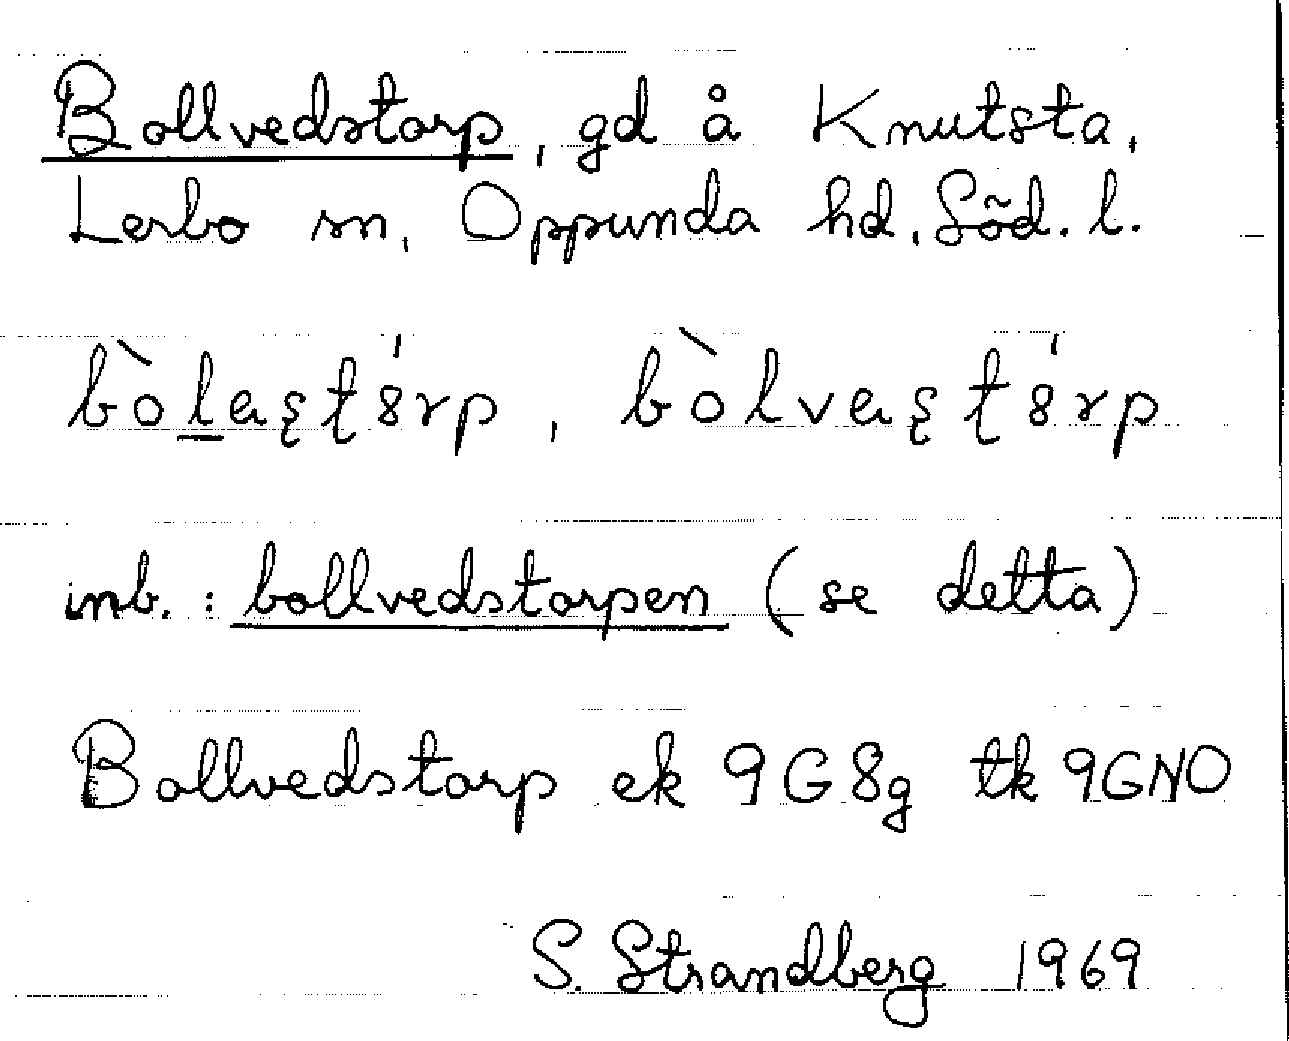 Bollvedstorp, gd å Knutsta,
Lerbo sn, Oppunda hd, Söd. l.
bòlaşt8́rp, bòlvaşt8́rp
inb.: bollvedstorpen (se detta)
Bollvedstorp ek 9G8g tk 9GNO
S. Strandberg 1969